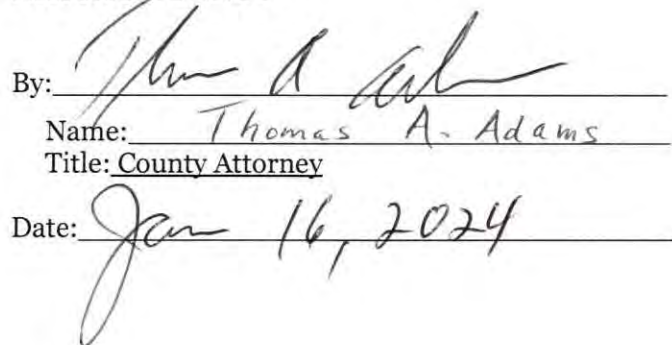 By: Thomas A Adams
Name: Thomas A. Adams
Title: County Attorney
Date: Jan 16, 2024